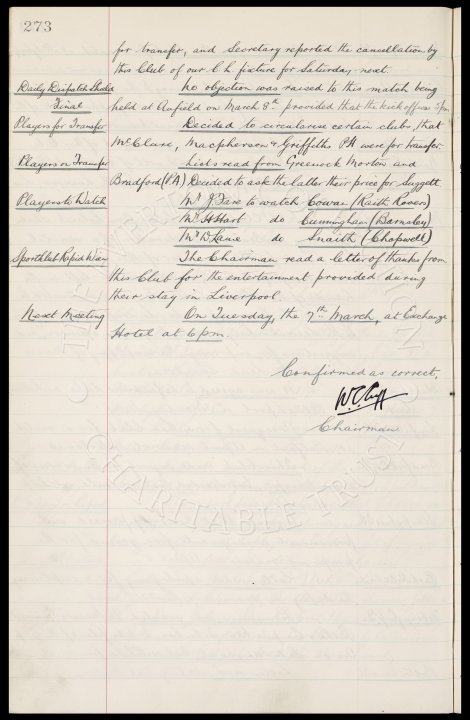 273
for transfer, and Secretary reported the cancellation by
this Club of our C.L fixture for Saturday next.
Daily Dispatch Shield Final
No objection was raised to this match being
held at Anfield on March 8th provided that the kick off was 5pm
Players for Transfer
Decided to circularise certain clubs, that
McClure, Macpherson & Griffiths P.H were for transfer.
Players on Transfer
Lists read from Greenock Morton and
Bradford (P.A) Decided to ask the latter their price for Suggett
Players to Watch
Mr J. Fare to watch Cowan (Raith Rovers)
Mr H Hart do Cunningham (Barnsley)
Mr D Kane do Snaith (Chopwell)
Sportklub Rapid Wien
The Chairman read a letter of thanks from
this Club for the entertainment provided during
their stay in Liverpool.
Next Meeting
On Tuesday, the 7th March, at Exchange
Hotel at 6 pm.
Confirmed as correct,
W.C. Cuff
Chairman
THE EVERTON
CHARITABLE TRUST